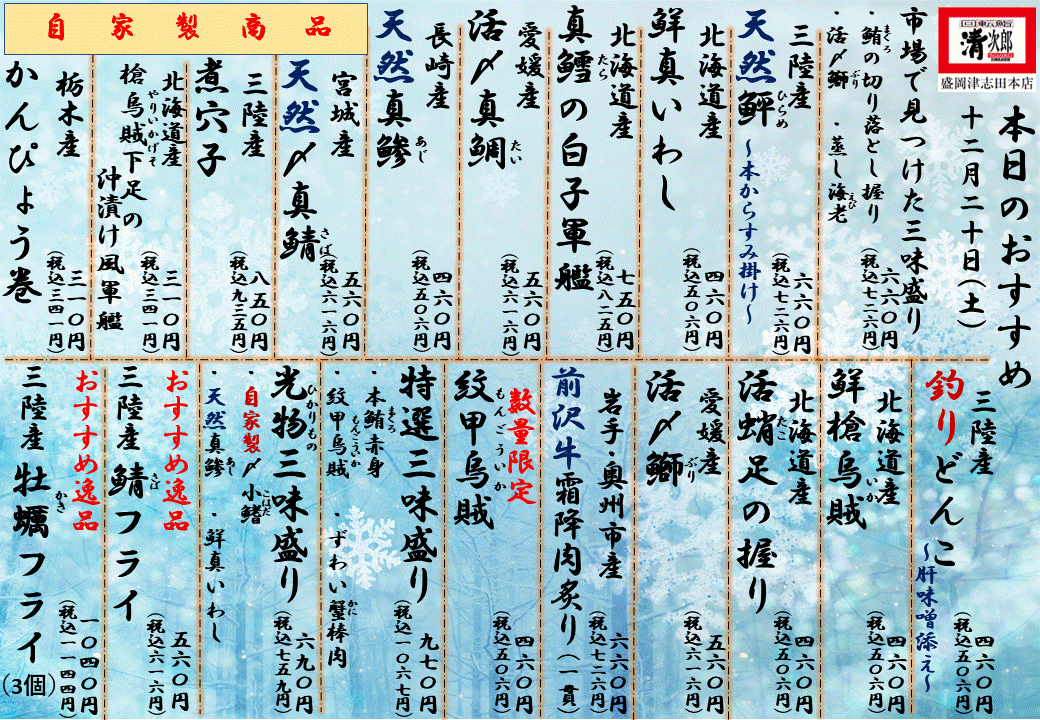 回転鮨
清次郎
盛岡津志田本店
本日のおすすめ
十二月二十日(土)
市場で見つけた三味盛り
・鮪の切り落とし握り
まぐろ
・活〆鰤
ぶり
・蒸し海老
えび
六六〇円
(税込七二六円)
三陸産
天然鮃
ひらめ
~本からすみ掛け~
六六〇円
(税込七二六円)
北海道産
鮮真いわし
四六〇円
(税込五〇六円)
北海道産
真鱈の白子軍艦
たら
七五〇円
(税込八二五円)
愛媛産
活〆真鯛
たい
五六〇円
(税込六一六円)
長崎産
天然真鯵
あじ
四六〇円
(税込五〇六円)
自家製商品
宮城産
天然〆真鯖
さば
五六〇円
(税込六一六円)
三陸産
煮穴子
八五〇円
(税込九三五円)
北海道産
槍烏賊下足の
やりいかげそ
沖漬け風軍艦
三一〇円
(税込三四一円)
栃木産
かんぴょう巻
三一〇円
(税込三四一円)
三陸産
釣りどんこ
~肝味噌添え~
四六〇円
(税込五〇六円)
北海道産
鮮槍烏賊
いか
四六〇円
(税込五〇六円)
北海道産
活蛸足の握り
たこ
四六〇円
(税込五〇六円)
愛媛産
活〆鰤
ぶり
五六〇円
(税込六一六円)
岩手・奥州市産
前沢牛霜降肉炙り(一貫)
六六〇円
(税込七二六円)
数量限定
紋甲烏賊
もんごういか
四六〇円
(税込五〇六円)
特選三味盛り
・本鮪赤身
まぐろ
・紋甲烏賊
もんごういか
・ずわい蟹棒肉
かに
九七〇円
(税込一〇六七円)
光物三味盛り
ひかりもの
・自家製〆小鰭
こはだ
・天然真鯵
あじ
・鮮真いわし
六九〇円
(税込七五九円)
おすすめ逸品
三陸産鯖フライ
さば
五六〇円
(税込六一六円)
おすすめ逸品
三陸産牡蠣フライ
かき
(3個)
一〇四〇円
(税込一一四四円)